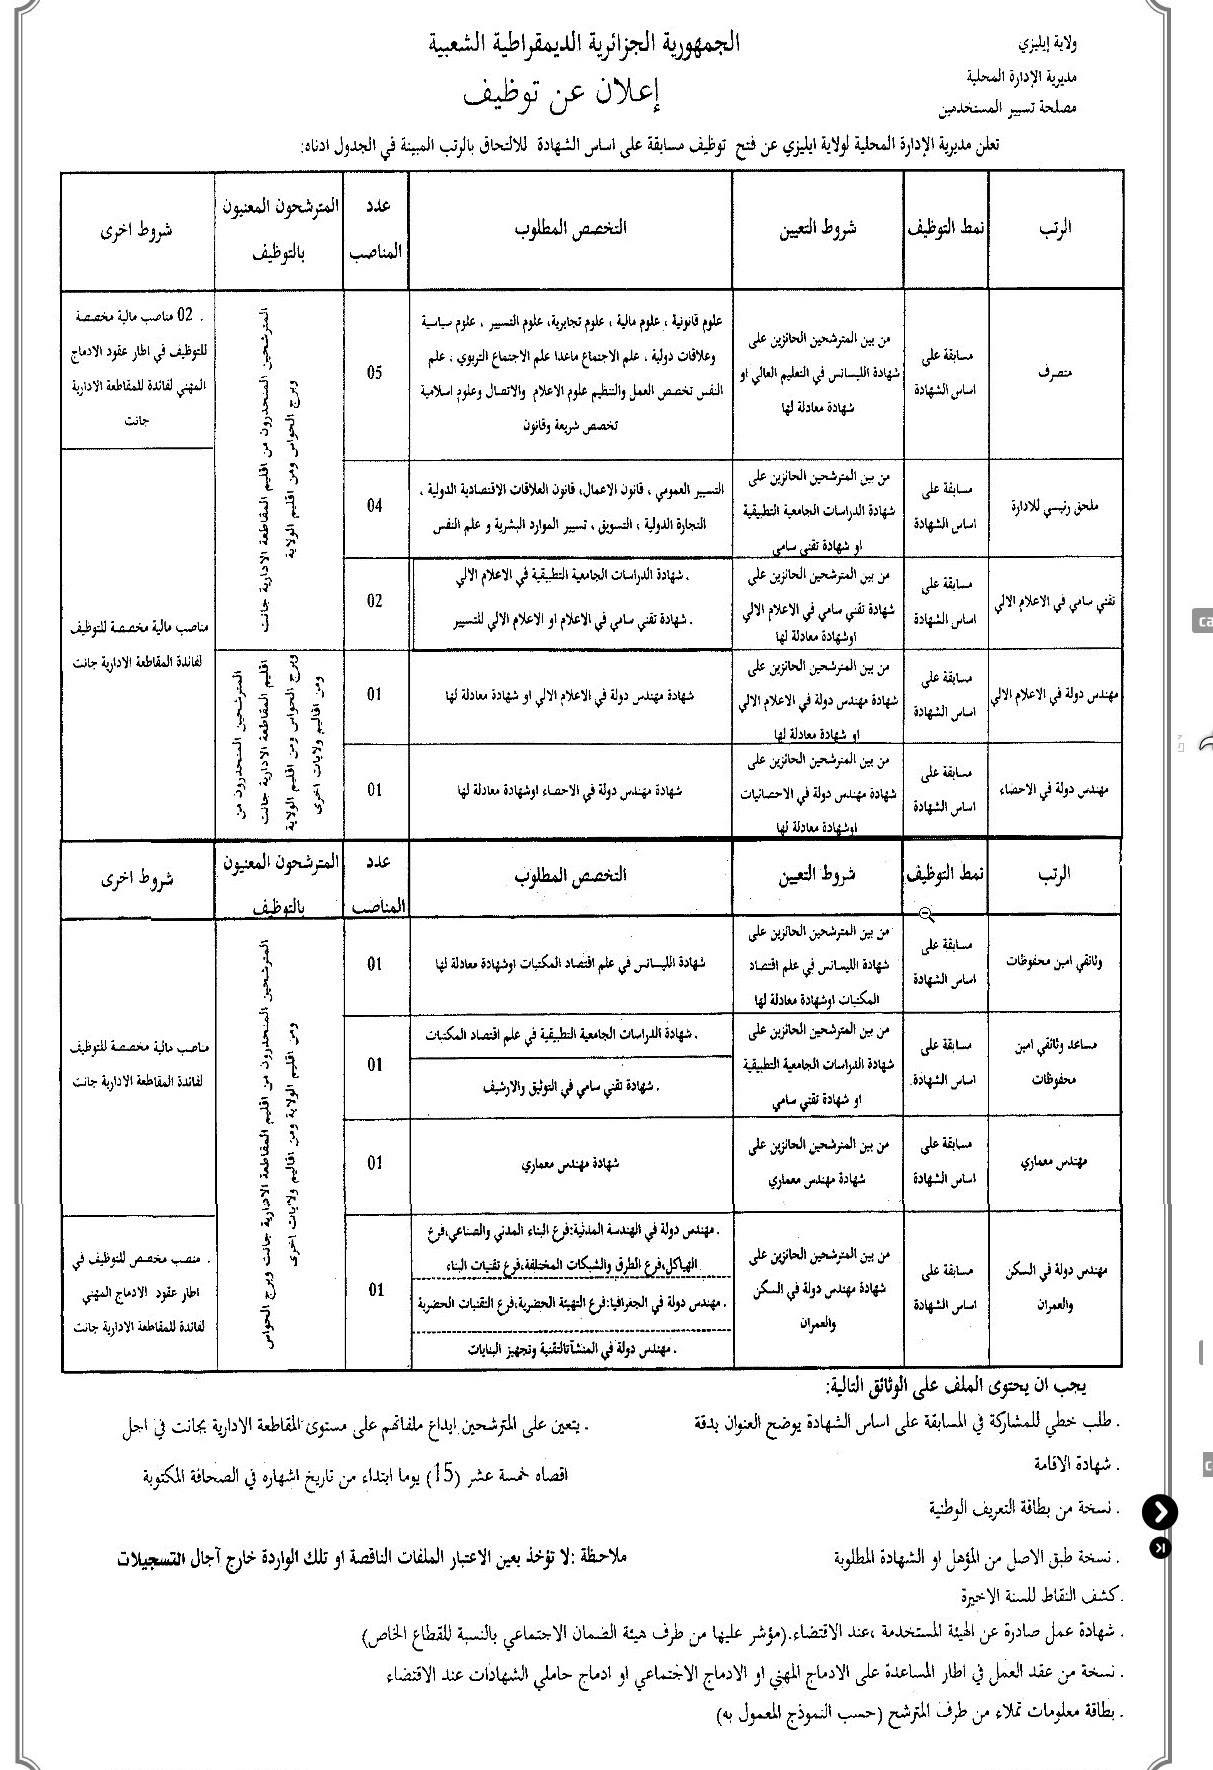 الجمهورية الجزائرية الديمقراطية الشعبية
ولاية إيليزي
مديرية الإدارة المحلية
مصلحة تسيير المستخدمين
إعلان عن توظيف
تعلن مديرية الإدارة المحلية لولاية ايليزي عن فتح توظيف مسابقة على اساس الشهادة للالتحاق بالرتب المبينة في الجدول ادناه:
الرتب
نمط التوظيف
شروط التعيين
التخصص المطلوب
عدد
المناصب
المترشحون المعنيون
بالتوظيف
شروط اخرى
متصرف
مسابقة على
اساس الشهادة
من بين المترشحين الحائزين على
شهادة الليسانس في التعليم العالي او
شهادة معادلة لها
علوم قانونية ، علوم مالية ، علوم تجايرية، علوم التسيير ، علوم سياسية
وعلاقات دولية ، علم الاجتماع ماعدا علم الاجتماع التربوي ، علم
النفس تخصص العمل والتنظيم علوم الاعلام والاتصال وعلوم اسلامية
تخصص شريعة وقانون
05
المترشحين المنحدرون من اقليم المقاطعة الادارية جانت
وبرج الحواس ومن اقليم الولاية
. 02 مناصب مالية مخصصة
للتوظيف في اطار عقود الادماج
المهني لفائدة للمقاطعة الادارية
جانت
ملحق رئيسي للادارة
مسابقة على
اساس الشهادة
من بين المترشحين الحائزين على
شهادة الدراسات الجامعية التطبيقية
او شهادة تقني سامي
التسيير العمومي ، قانون الاعمال، قانون العلاقات الاقتصادية الدولية ،
التجارة الدولية ، التسويق ، تسيير الموارد البشرية و علم النفس
04
تقني سامي في الاعلام الالي
مسابقة على
اساس الشهادة
من بين المترشحين الحائزين على
شهادة تقني سامي في الاعلام الالي
اوشهادة معادلة لها
. شهادة الدراسات الجامعية التطبيقية في الاعلام الالي
. شهادة تقني سامي في الاعلام او الاعلام الالي للتسيير
02
مناصب مالية مخصصة للتوظيف
لفائدة المقاطعة الادارية جانت
مهندس دولة في الاعلام الالي
مسابقة على
اساس الشهادة
من بين المترشحين الحائزين على
شهادة مهندس دولة في الاعلام الالي
او شهادة معادلة لها
شهادة مهندس دولة في الاعلام الالي او شهادة معادلة لها
01
المترشحين المنحدرون من
اقليم المقاطعة الادارية جانت
وبرج الحواس ومن اقليم الولاية
ومن اقاليم ولايات اخرى
مهندس دولة في الاحضاء
مسابقة على
اساس الشهادة
من بين المترشحين الحائزين على
شهادة مهندس دولة في الاحصائيات
اوشهادة معادلة لها
شهادة مهندس دولة في الاحصاء اوشهادة معادلة لها
01
الرتب
نمط التوظيف
شروط التعيين
التخصص المطلوب
عدد
المناصب
المترشحون المعنيون
بالتوظيف
شروط اخرى
وثائقي امين محفوظات
مسابقة على
اساس الشهادة
من بين المترشحين الحائزين على
شهادة الليسانس في علم اقتصاد
المكتبات اوشهادة معادلة لها
شهادة الليسانس في علم اقتصاد المكتبات اوشهادة معادلة لها
01
المترشحين المنحدرون من اقليم المقاطعة الادارية جانت وبرج الحواس
ومن اقليم الولاية ومن اقاليم ولايات اخرى
مناصب مالية مخصصة للتوظيف
لفائدة المقاطعة الادارية جانت
مساعد وثائقي امين
محفوظات
مسابقة على
اساس الشهادة.
من بين المترشحين الحائزين على
شهادة الدراسات الجامعية التطبيقية
او شهادة تقني سامي
. شهادة الدراسات الجامعية التطبيقية في علم اقتصاد المكتبات
. شهادة تقني سامي في التوثيق والارشيف
01
مهندس معماري
مسابقة على
اساس الشهادة
من بين المترشحين الحائزين على
شهادة مهندس معماري
شهادة مهندس معماري
01
مهندس دولة في السكن
والعمران
مسابقة على
اساس الشهادة
من بين المترشحين الحائزين على
شهادة مهندس دولة في السكن
والعمران
. مهندس دولة في الهندسة المدنية:فرع البناء المدني والصناعي،فرع
الهياكل،فرع الطرق والشبكات المختلفة،فرع تقنيات البناء
. مهندس دولة في الجغرافيا: فرع التهيئة الحضرية،فرع التقنيات الحضرية
. مهندس دولة في المنشآتالتقنية وتجهيز البنايات
01
. منصب مخصص للتوظيف في
اطار عقود الادماج المهني
لفائدة للمقاطعة الادارية جانت
يجب ان يحتوى الملف على الوثائق التالية:
. طلب خطي للمشاركة في المسابقة على اساس الشهادة يوضح العنوان بدقة
. شهادة الاقامة
. نسخة من بطاقة التعريف الوطنية
. نسخة طبق الاصل من المؤهل او الشهادة المطلوبة
. كشف النقاط للسنة الاخيرة
. شهادة عمل صادرة عن الهيئة المستخدمة ،عند الاقتضاء.(مؤشر عليها من طرف هيئة الضمان الاجتماعي بالنسبة للقطاع الخاص)
. نسخة من عقد العمل في اطار المساعدة على الادماج المهني او الادماج الاجتماعي او ادماج حاملي الشهادات عند الاقتضاء
. بطاقة معلومات تملاء من طرف المترشح (حسب النموذج المعمول به)
. يتعين على المترشحين ايداع ملفاتهم على مستوى المقاطعة الادارية بجانت في اجل
اقصاه خمسة عشر (15) يوما ابتداء من تاريخ اشهاره في الصحافة المكتوبة
ملاحظة :لا تؤخذ بعين الاعتبار الملفات الناقصة او تلك الواردة خارج آجال التسجيلات